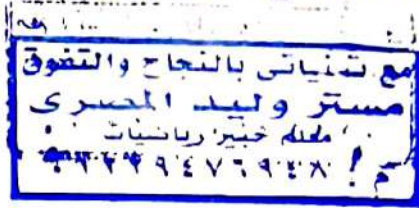 مع تمنياتى بالنجاح والتفوق
مستر وليد المصرى
معلم خبير رياضيات